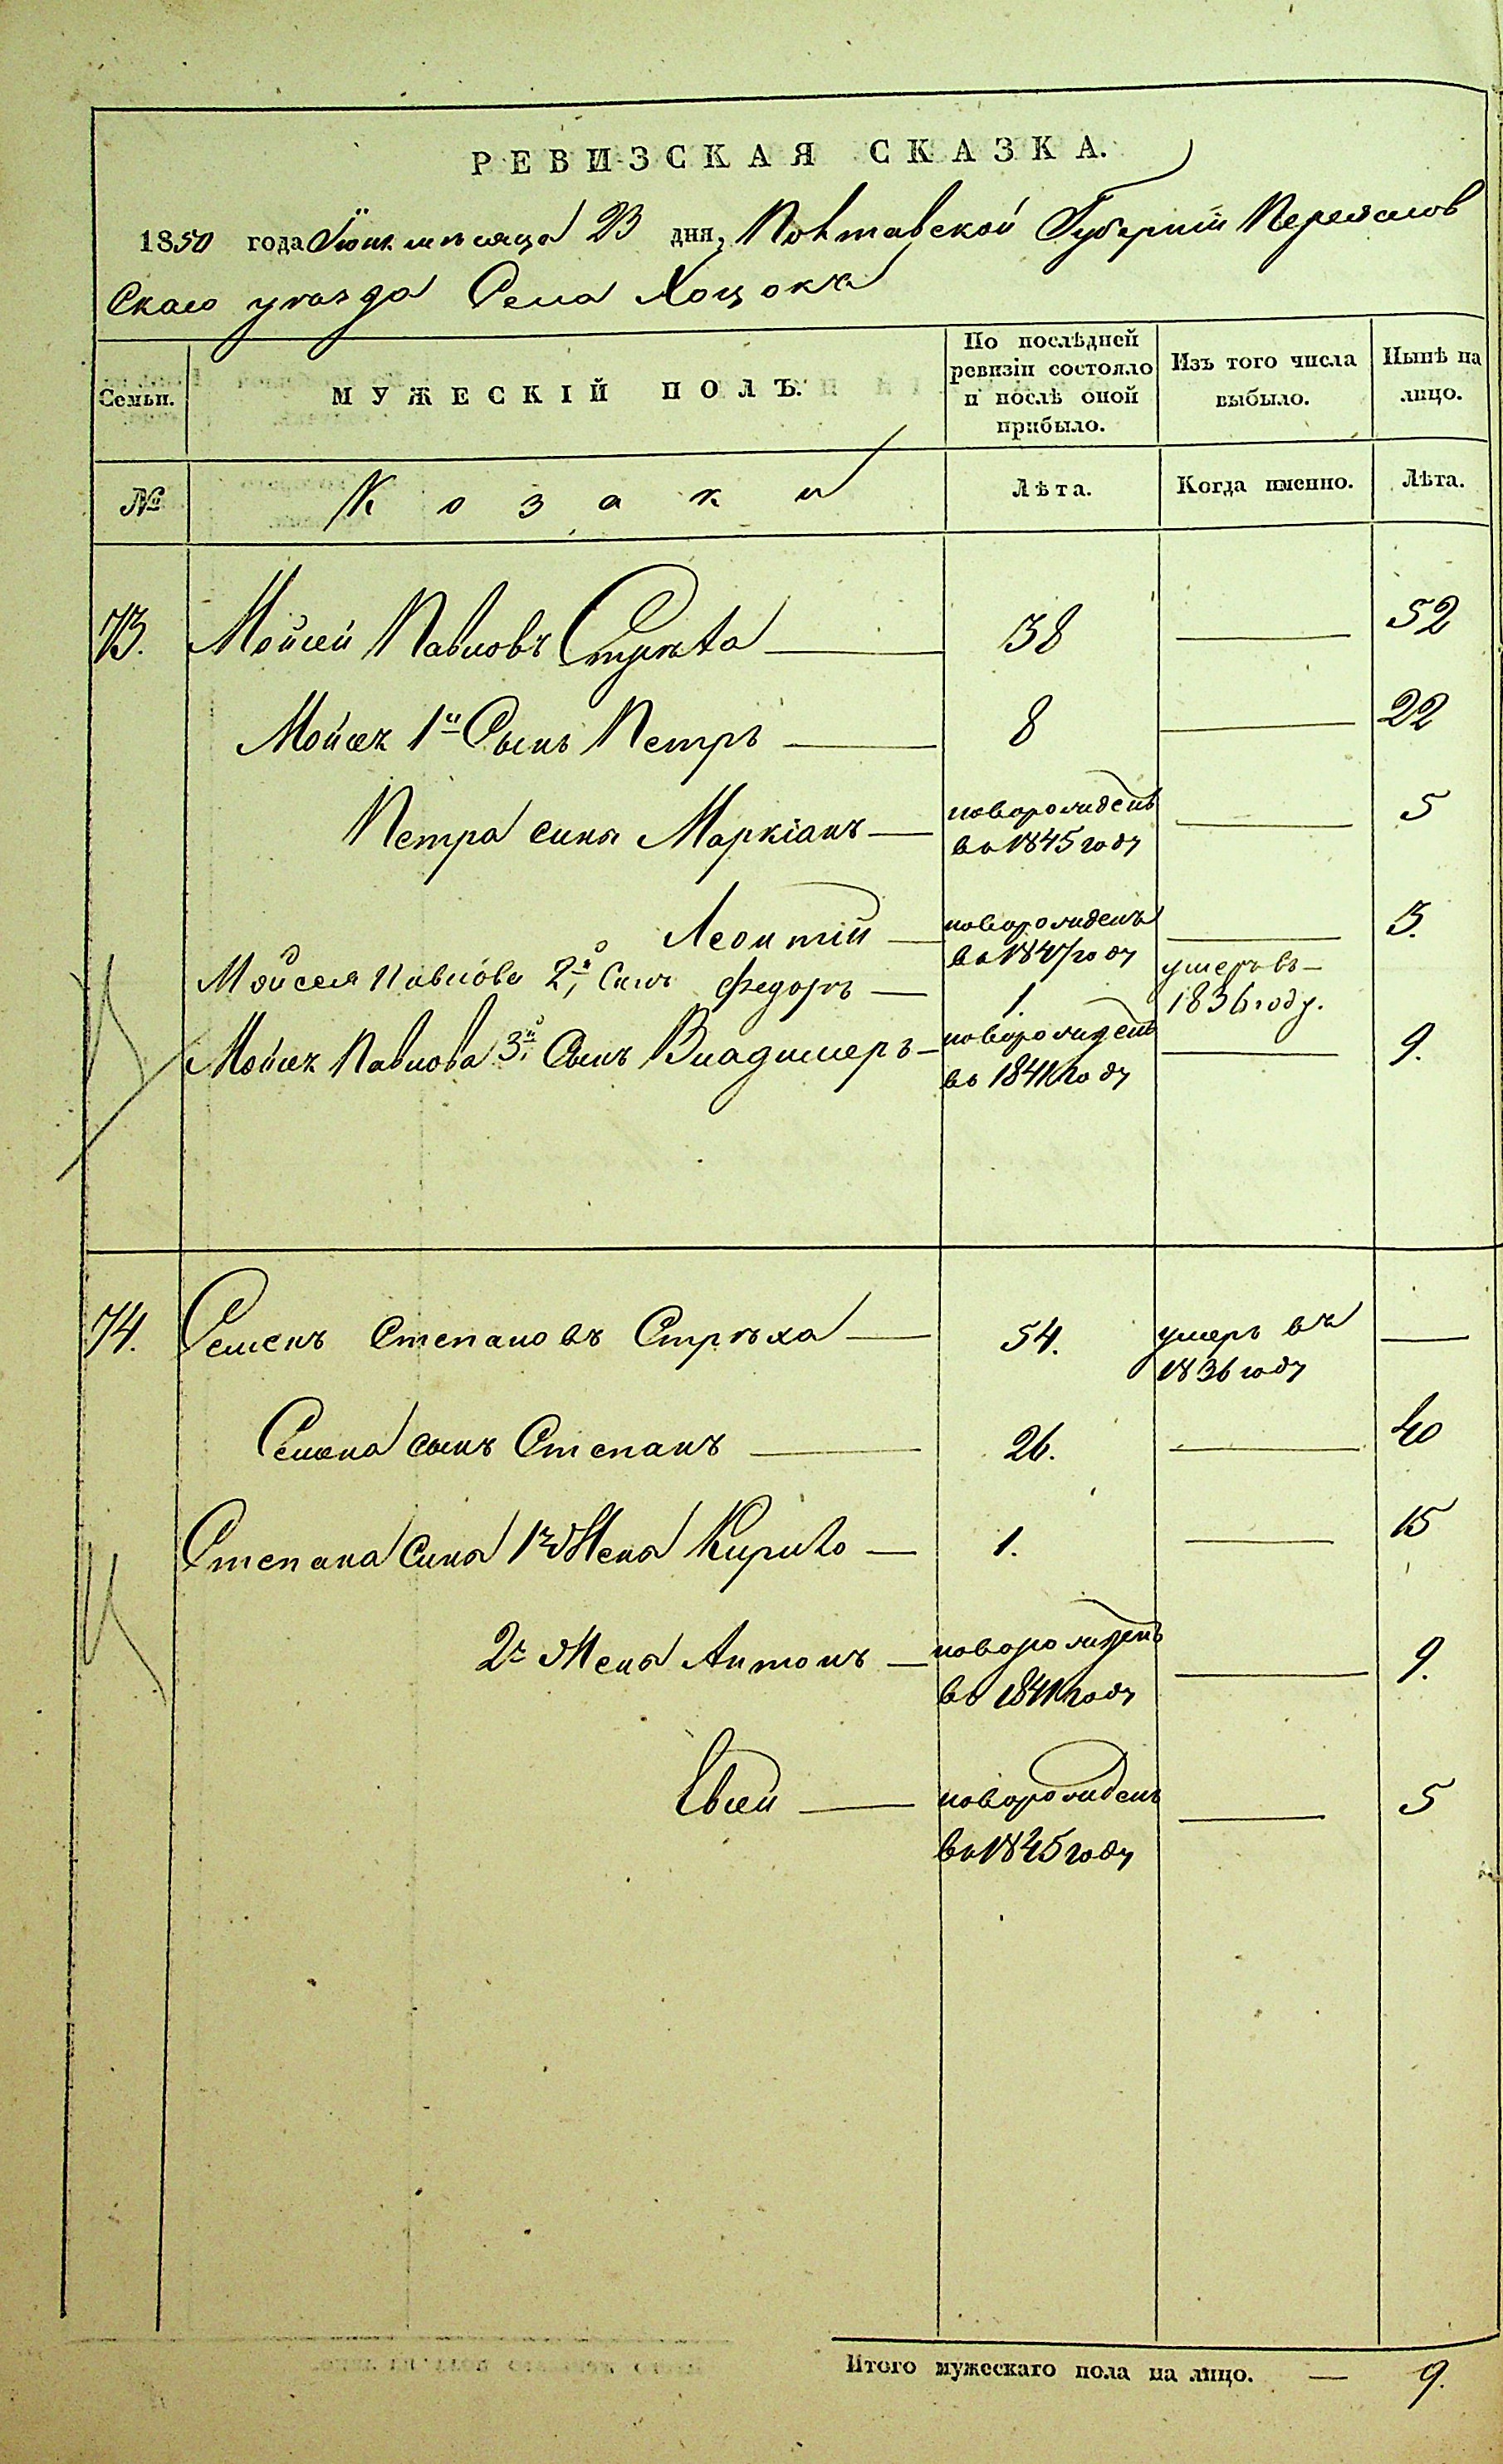 РЕВИЗСКАЯ СКАЗКА.
1850 года Іюня мѣсяца 23 дня, Полтавской Губерніи Переяслов
скаго уѣзда Села Хоцокъ
Семьи. МУЖЕСКІЙ ПОЛЪ. По послѣдней ревизіи состояло и послѣ оной прибыло. Изъ того числа выбыло. Нынѣ на лицо.
№ Козаки Лѣта. Когда именно. Лѣта.
73. Мойсей Павловъ Стрѣха 38 52
Мойсея 1й Сынъ Петръ 8 22
Петра сынъ Маркіанъ новорожденъ въ 1845 году 5
Леонтій новорожденъ въ 1847 году 3.
Мойсея Павлова 2й Сынъ Федоръ 1. умеръ въ 1836 году.
Мойсея Павлова 3й Сынъ Владимеръ новорожденъ въ 1841 году 9.
74. Семенъ Степановъ Стрѣха 54. умеръ въ 1836 году
Семена сынъ Степанъ 26. 40
Степана Сина 1й Жена Кирило 1. 15
2й Жена Антонъ новорожденъ въ 1841 году 9.
Евсей новорожденъ въ 1845 году 5
Итого мужескаго пола на лицо. 9.